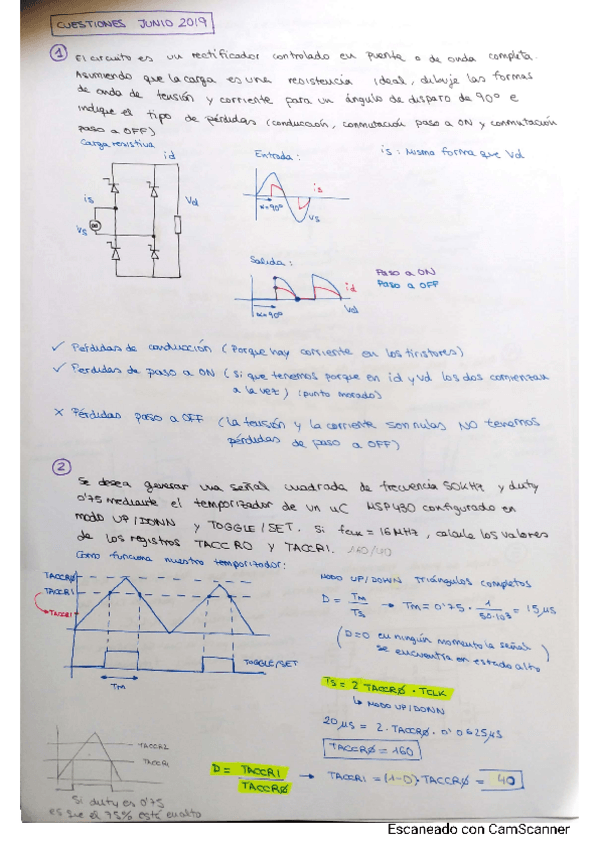 CUESTIONES JUNIO 2019
1 El circuito es un rectificador controlado en puente o de onda completa.
Asumiendo que la carga es una resistencia ideal, dibuje las formas
de onda de tensión y corriente para un ángulo de disparo de 90º e
indique el tipo de pérdidas (conducción, conmutación paso a ON y conmutación
paso a OFF)
Carga resistiva
id
Entrada:
is : Misma forma que Vd
is
Vd
Vs
is
α=90º
Vs
Salida:
Paso a ON
Paso a OFF
id
α=90º
Vd
✓ Pérdidas de conducción (Porque hay corriente en los tiristores)
✓ Perdidas de paso a ON (Si que tenemos porque en id y Vd los dos comienzan
a la vez) (punto morado)
x Pérdidas paso a OFF (la tensión y la corriente son nulas NO tenemos
pérdidas de paso a OFF)
2
Se desea generar una señal cuadrada de frecuencia 50KHz y duty
0'75 mediante el temporizador de un uC MSP430 configurado en
modo UP/DOWN y TOGGLE/SET. Si fclk = 16MHz, calcule los valores
de los registros TACCR0 y TACCR1. 160/40
Como funciona nuestro temporizador:
TACCRØ
TACCR1
TACCR1
TOGGLE/SET
Tm
MODO UP/DOWN Triángulos completos
D = Tm/Ts → Tm = 0'75 · 1/50·10³ = 15µs
(D=0 en ningún momento la señal
se encuentra en estado alto)
Ts = 2 TACCRØ · TCLK
↳ MODO UP/DOWN
20µs = 2 · TACCRØ · 0'0625µs
TACCRØ = 160
D = TACCR1/TACCRØ → TACCR1 = (1-D)·TACCRØ = 40
TACCR2
TACCR1
Si duty es 0'75
es que el 75% está en alto
Escaneado con CamScanner